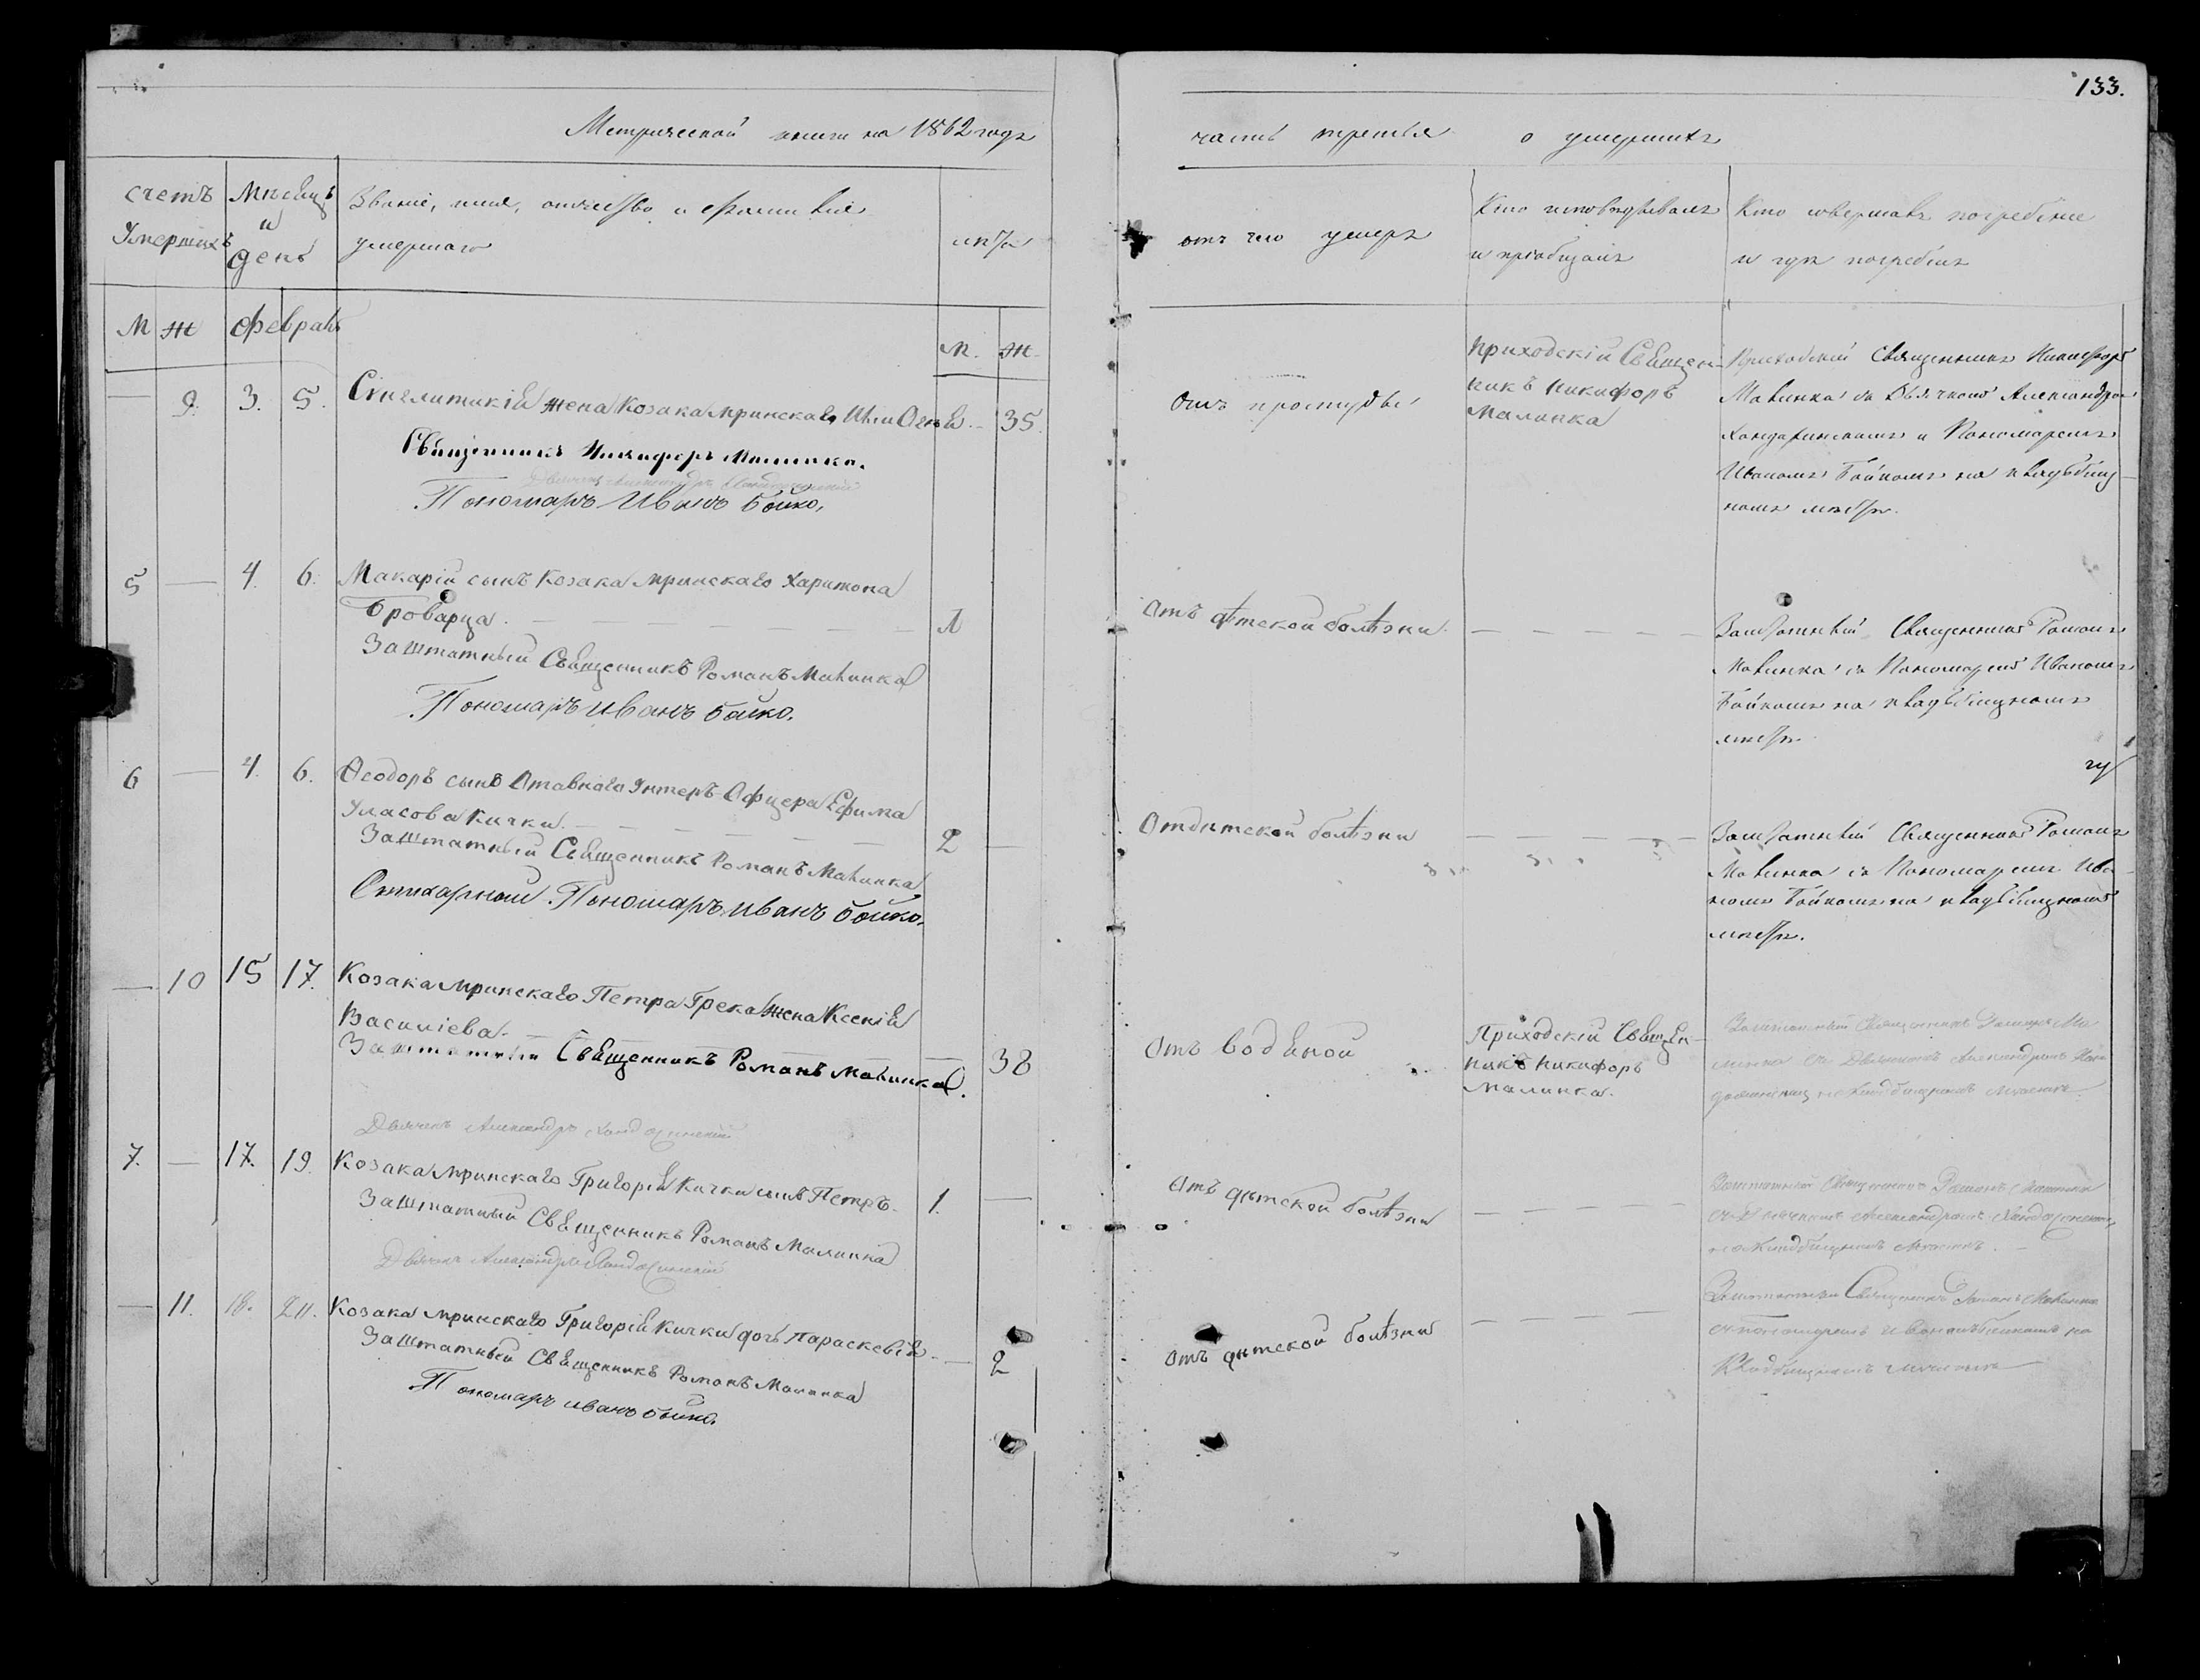 133.
Метрической книги на 1862 года
часть третья о умершихъ
счетъ Умершихъ
Мѣсяцъ и день
Званіе, имя, отчество и фамилія умершаго
лѣта
отъ чего умеръ
Кто исповѣдывалъ и пріобщалъ
Кто совершалъ погребеніе и гдѣ погребенъ
М Ж февраль
М. Ж.
— 9. 3. 5. Сѵнглитикія жена Козака Мринскаго
— 35.
Священникъ Никифоръ Малинка.
Дьячекъ Александръ
Пономарь Иванъ Бойко.
Отъ простуды
Приходскій Священ-
никъ Никифоръ
Малинка
Приходскій Священникъ Никифоръ
Малинка съ Дьячкомъ Александромъ
и Пономаремъ
Иваномъ Бойкомъ на кладбищ-
номъ мѣстѣ.
5 — 4. 6. Макарій сынъ Козака Мринскаго Харитона
Броварца. — 1
Заштатный Священникъ Романъ Малинка
Пономарь Иванъ Бойко.
Отъ дѣтской болѣзни.
Заштатный Священникъ Романъ
Малинка съ Пономаремъ Иваномъ
Бойкомъ на кладбищномъ
мѣстѣ.
6 — 4. 6. Ѳеодоръ сынъ Отавнаго Унтеръ-Офицера Ефима
Уласова Кички. — 2 —
Заштатный Священникъ Романъ Малинка
Стихарный Пономарь Иванъ Бойко.
Отдѣтской болѣзни
Заштатный Священникъ Романъ
Малинка съ Пономаремъ Ива-
номъ Бойкомъ на кладбищномъ
мѣстѣ.
— 10 15 17. Козака Мринскаго Петра Грека жена Ксенія
Василіева. — 38
Заштатный Священникъ Романъ Малинка.
Дьячекъ Александръ
Отъ водяной
Приходскій Священ-
никъ Никифоръ
Малинка.
Заштатный Священникъ Романъ Ма-
линка съ Дьячкомъ Александромъ
на Кладбищномъ мѣстѣ.
7. — 17. 19. Козака Мринскаго Григорія Кички сынъ Петръ. 1. —
Заштатный Священникъ Романъ Малинка
Дьячекъ Александръ
Отъ дѣтской болѣзни
Заштатный Священникъ Романъ Малинка
съ Дьячкомъ Александромъ
на Кладбищномъ мѣстѣ.
— 11. 18. Козака Мринскаго Григорія Кички дочь Параскевія. — 2
Заштатный Священникъ Романъ Малинка
Пономарь Иванъ Бойко.
Отъ дѣтской болѣзни
Заштатный Священникъ Романъ Малинка
съ пономаремъ Иваномъ Бойкомъ на
Кладбищномъ мѣстѣ